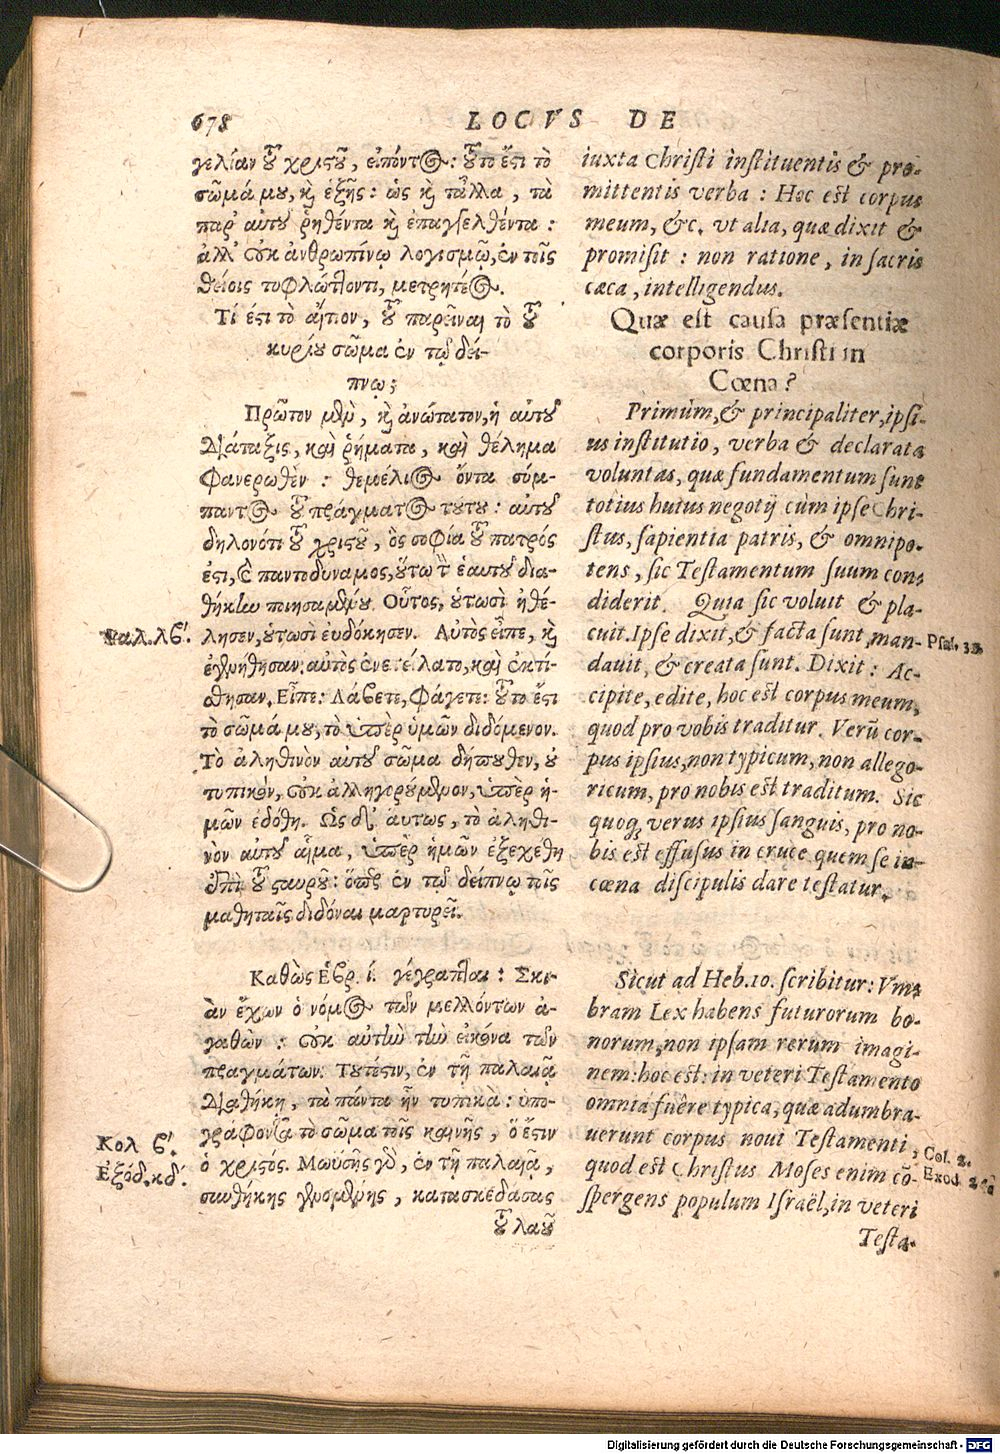 678 LOCVS DE
γελίαν τοῦ χριστοῦ, εἰπόντος: τοῦτο ἔστι τὸ
σῶμά μου, καὶ ἑξῆς: ὡς καὶ τἆλλα, τὰ
παρ' αὐτοῦ ῥηθέντα καὶ ἐπαγγελθέντα:
ἀλλ' οὐκ ἀνθρωπίνῳ λογισμῷ, ἐν τοῖς
θείοις τυφλώττοντι, μετρητέος.
Τί ἐστι τὸ αἴτιον, τοῦ παρεῖναι τὸ τοῦ
κυρίου σῶμα ἐν τῷ δεί-
πνῳ;
Πρῶτον μὲν, καὶ ἀνώτατον, ἡ αὐτοῦ
διάταξις, καὶ ῥήματα, καὶ θέλημα
φανερωθὲν: θεμέλιος ὄντα σύμ-
παντος τοῦ πράγματος τούτου: αὐτοῦ
δηλονότι τοῦ χριστοῦ, ὃς σοφία τοῦ πατρός
ἐστι, καὶ παντοδύναμος, οὕτω τὴν ἑαυτοῦ δια-
θήκην ποιησαμένου. Οὗτος, οὑτωσὶ ἠθέ-
Ψαλ. λβ'.
λησεν, οὑτωσὶ εὐδόκησεν. Αὐτὸς εἶπε, καὶ
ἐγενήθησαν: αὐτὸς ἐνετείλατο, καὶ ἐκτί-
σθησαν. Εἶπε: Λάβετε, φάγετε: τοῦτο ἔστι
τὸ σῶμά μου, τὸ ὑπὲρ ὑμῶν διδόμενον.
Τὸ ἀληθινὸν αὐτοῦ σῶμα δήπουθεν, οὐ
τυπικόν, οὐκ ἀλληγορούμενον, ὑπὲρ ἡ-
μῶν ἐδόθη. Ὡς δ' αὔτως, τὸ ἀληθι-
νὸν αὐτοῦ αἷμα, ὑπὲρ ἡμῶν ἐξεχέθη
ἐπὶ τοῦ σταυροῦ: ὅπερ ἐν τῷ δείπνῳ τοῖς
μαθηταῖς διδόναι μαρτυρεῖ.
Καθὼς Ἑβρ. ί. γέγραπται: Σκι-
ὰν ἔχων ὁ νόμος τῶν μελλόντων ἀ-
γαθῶν: οὐκ αὐτὴν τὴν εἰκόνα τῶν
πραγμάτων. Τουτέστιν, ἐν τῇ παλαιᾷ
διαθήκῃ, τὰ πάντα ἦν τυπικὰ: ὑπο-
Κολ β'.
γράφοντα τὸ σῶμα τοῖς καινῆς, ὅ ἔστιν
Ἐξόδ. κδ'.
ὁ χριστός. Μωϋσῆς γὰρ, ἐν τῇ παλαιᾷ,
συνθήκης γενομένης, κατασκεδάσας
τοῦ λαοῦ
iuxta Christi instituentis & pro-
mittentis verba: Hoc est corpus
meum, &c. vt alia, quæ dixit &
promisit: non ratione, in sacris
cæca, intelligendus.
Quæ est causa præsentiæ
corporis Christi in
Cœna?
Primùm, & principaliter, ipsi-
us institutio, verba & declarata
voluntas, quæ fundamentum sunt
totius huius negotij cùm ipse Chri-
stus, sapientia patris, & omnipo-
tens, sic Testamentum suum con-
diderit. Quia sic voluit & pla-
cuit. Ipse dixit, & facta sunt, man-
Psal. 32.
dauit, & creata sunt. Dixit: Ac-
cipite, edite, hoc est corpus meum,
quod pro vobis traditur. Verū cor-
pus ipsius, non typicum, non allego-
ricum, pro nobis est traditum. Sic
quoq; verus ipsius sanguis, pro no-
bis est effusus in cruce quem se in
cœna discipulis dare testatur.
Sicut ad Heb. 10. scribitur: Vm-
bram Lex habens futurorum bo-
norum, non ipsam rerum imagi-
nem: hoc est: in veteri Testamento
omnia fuêre typica, quæ adumbra-
uerunt corpus noui Testamenti,
Col. 2.
quod est Christus Moses enim cō-
Exod. 24.
spergens populum Israël, in veteri
Testa-
Digitalisierung gefördert durch die Deutsche Forschungsgemeinschaft - DFG